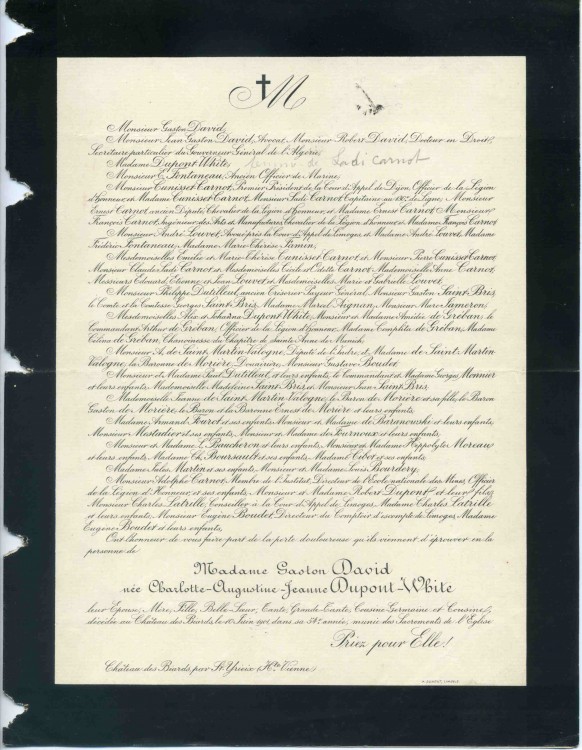 M
Monsieur Gaston David,
Monsieur Jean Gaston David, Avocat, Monsieur Robert David, Docteur en Droit,
Secrétaire particulier du Gouverneur Général de l'Algérie,
Madame Dupont White, de Sadi Carnot
Monsieur E. Fontaneau, Ancien Officier de Marine,
Monsieur Cunisset Carnot, Premier Président de la Cour d'Appel de Dijon, Officier de la Légion
d'Honneur, et Madame Cunisset Carnot, Monsieur Sadi Carnot, Capitaine au de Ligne, Monsieur
Ernest Carnot, ancien Député, Chevalier de la Légion d'Honneur, et Madame Ernest Carnot, Monsieur
François Carnot, Ingénieur des Arts et Manufactures, Chevalier de la Légion d'Honneur et Madame François Carnot,
Monsieur André Louvet, Avoué près la Cour d'Appel de Limoges, et Madame André Louvet, Madame
Frédéric Fontaneau, Madame Marie Thérèse Pamin,
Mesdemoiselles Emilie et Marie Thérèse Cunisset Carnot et Monsieur Pierre Cunisset Carnot,
Monsieur Claude Sadi Carnot et Mesdemoiselles Cécile et Odette Carnot, Mademoiselle Anne Carnot,
Messieurs Edouard, Etienne et Jean Louvet et Mesdemoiselles Marie et Gabrielle Louvet,
Monsieur Philippe Dutilleul, ancien Trésorier Payeur Général, Monsieur Gaston Saint Bris,
le Comte et la Comtesse Georges Saint Bris, Madame Marcel Aignan, Monsieur Marc Lameron,
Mesdemoiselles Alix et Johanna Dupont White, Monsieur et Madame Amédée de Gréban, le
Commandant Arthur de Gréban, Officier de la Légion d'Honneur, Madame de Gréban, Madame
Célina de Gréban, Chanoinesse du Chapitre de Sainte Anne de Munich,
Monsieur A. de Saint Martin Valogne, Député de l'Indre, et Madame de Saint Martin
Valogne, la Baronne de Morière Douairière, Monsieur Gustave Boudet,
Monsieur et Madame Paul Dutilleul, et leurs enfants, le Commandant et Madame Georges Monnier
et leurs enfants, Mademoiselle Madeleine Saint Bris et Monsieur Jean Saint Bris,
Mademoiselle Jeanne de Saint Martin Valogne, le Baron de Morière et sa fille, le Baron
Gaston de Morière, le Baron et la Baronne Ernest de Morière et leurs enfants,
Madame Armand Fouret et ses enfants, Monsieur et Madame de Baranowski et leurs enfants,
Monsieur Mestadier et ses enfants, Monsieur et Madame de Fourneux et leurs enfants,
Monsieur et Madame L. Baucheron et leurs enfants, Monsieur et Madame Hippolyte Moreau
et leurs enfants, Madame Ch. Boursault et ses enfants, Madame Cibot et ses enfants,
Madame Jules Martin et ses enfants, Monsieur et Madame Louis Bourdery,
Monsieur Adolphe Carnot, Membre de l'Institut, Directeur de l'Ecole nationale des Mines, Officier
de la Légion d'Honneur et ses enfants, Monsieur et Madame Robert Dupont et leur fils,
Monsieur Charles Latrille, Conseiller à la Cour d'Appel de Limoges, Madame Charles Latrille
et leurs enfants, Monsieur Eugène Boudet, Directeur du Comptoir d'escompte de Limoges, Madame
Eugène Boudet et leurs enfants,
Ont l'honneur de vous faire part de la perte douloureuse qu'ils viennent d'éprouver en la
personne de
Madame Gaston David
née Charlotte-Augustine-Jeanne Dupont-White
leur Epouse, Mère, Fille, Belle-Sœur, Tante, Grande-Tante, Cousine Germaine et Cousine,
décédée au Château des Biards, le Juin 1901, dans sa 54e année, munie des Sacrements de l'Eglise
Priez pour Elle!
Château des Biards, par St Yrieix (Hte Vienne)